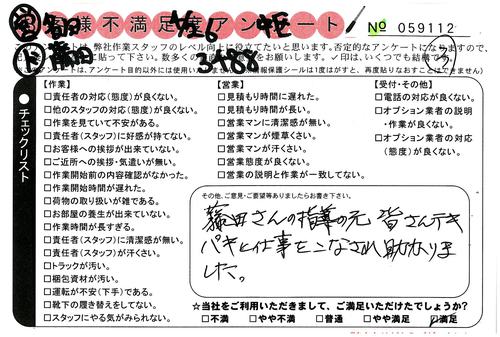 お客様不満足度アンケート
№ 059112
3488
このアンケートは、弊社作業スタッフのレベル向上に役立てたいと思います。否定的なアンケートになりますので、
チェックリスト
【作業】
□責任者の対応(態度)が良くない。
□他のスタッフの対応(態度)が良くない。
□作業を見ていて不安がある。
□責任者(スタッフ)に好感が持てない。
□お客様への挨拶が出来ていない。
□ご近所への挨拶・気遣いが無い。
□作業開始前の内容確認がなかった。
□作業開始時間が遅れた。
□荷物の取り扱いが雑である。
□お部屋の養生が出来ていない。
□作業時間が長すぎる。
□責任者(スタッフ)に清潔感が無い。
□責任者(スタッフ)が汗くさい。
□トラックが汚い。
□梱包資材が汚い。
□運転が不安(下手)である。
□靴下の履き替えをしてない。
□スタッフにやる気がみられない。
【営業】
□見積もり時間に遅れた。
□見積もり時間が長い。
□営業マンに清潔感が無い。
□営業マンが煙草くさい。
□営業マンが汗くさい。
□営業態度が良くない。
□営業の説明と作業が一致してない。
【受付・その他】
□電話の対応が良くない。
□オプション業者の説明
・作業が良くない。
□オプション業者の対応
(態度)が良くない。
その他、ご意見・ご要望等ありましたらお書き下さい。
さんの指導の元 皆さんテキ
パキと仕事をこなされ助かりま
した。
☆当社をご利用いただきまして、ご満足いただけたでしょうか?
□不満 □やや不満 □普通 □やや満足 □満足